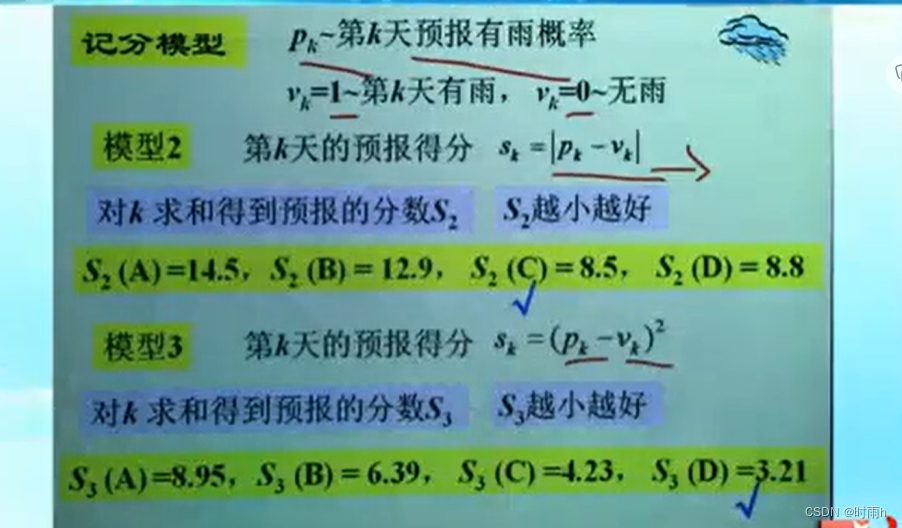 记分模型 pₖ~第k天预报有雨概率
vₖ=1~第k天有雨， vₖ=0~无雨
模型2 第k天的预报得分 sₖ = |pₖ − vₖ|
对k 求和得到预报的分数S₂ S₂越小越好
S₂ (A)=14.5， S₂ (B) = 12.9， S₂ (C) = 8.5， S₂ (D) = 8.8
模型3 第k天的预报得分 sₖ = (pₖ − vₖ)²
对k 求和得到预报的分数S₃ S₃越小越好
S₃ (A)=8.95， S₃ (B) = 6.39， S₃ (C) =4.23， S₃ (D) =3.21
CSDN @时雨h